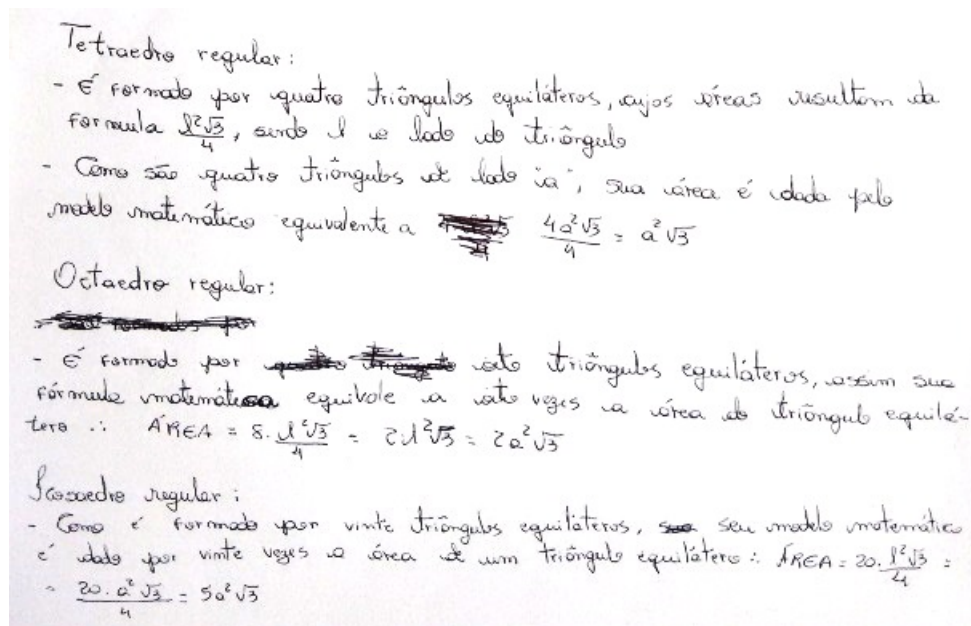 Tetraedro regular:
- É formado por quatro triângulos equiláteros, cujos áreas resultam da
formula l²√3/4, sendo l o lado do triângulo
- Como são quatro triângulos de lado "a", sua área é dada pelo
modelo matemático equivalente a 4a²√3/4 = a²√3
Octaedro regular:
- É formado por oito triângulos equiláteros, assim sua
fórmula matemática equivale a oito vezes a área do triângulo equilá-
tero ∴ ÁREA = 8. l²√3/4 = 2l²√3 = 2a²√3
Icosaedro regular:
- Como é formado por vinte triângulos equiláteros, seu modelo matemático
é dado por vinte vezes a área de um triângulo equilátero ∴ ÁREA = 20. l²√3/4 =
= 20. a²√3/4 = 5a²√3